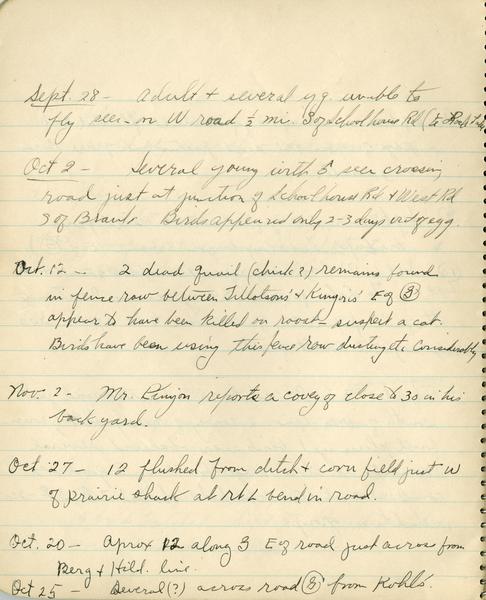 Sept. 28 - adult + several yg. unable to
fly seen on W road ½ mi. S of Schoolhouse Rd (
Oct 2 - Several young with seen crossing
road just at junction of Schoolhouse Rd + West Rd
S of Brants. Birds appeared only 2-3 days out of egg.
Oct. 12 - 2 dead quail (chick?) remains found
in fence row between Tillotsons' + Kinyons' E of
appear to have been killed on roost - suspect a cat.
Birds have been using this fence row dusting etc. considerably
Nov. 2 - Mr. Kinyon reports a covey of close to 30 in his
back yard.
Oct 27 - 12 flushed from ditch + corn field just W
of prairie shack at rt L bend in road.
Oct. 20 - Aprox 12 along S E of road just across from
Berg + Hild. line.
Oct 25 - Several (?) across road from Kohl's.